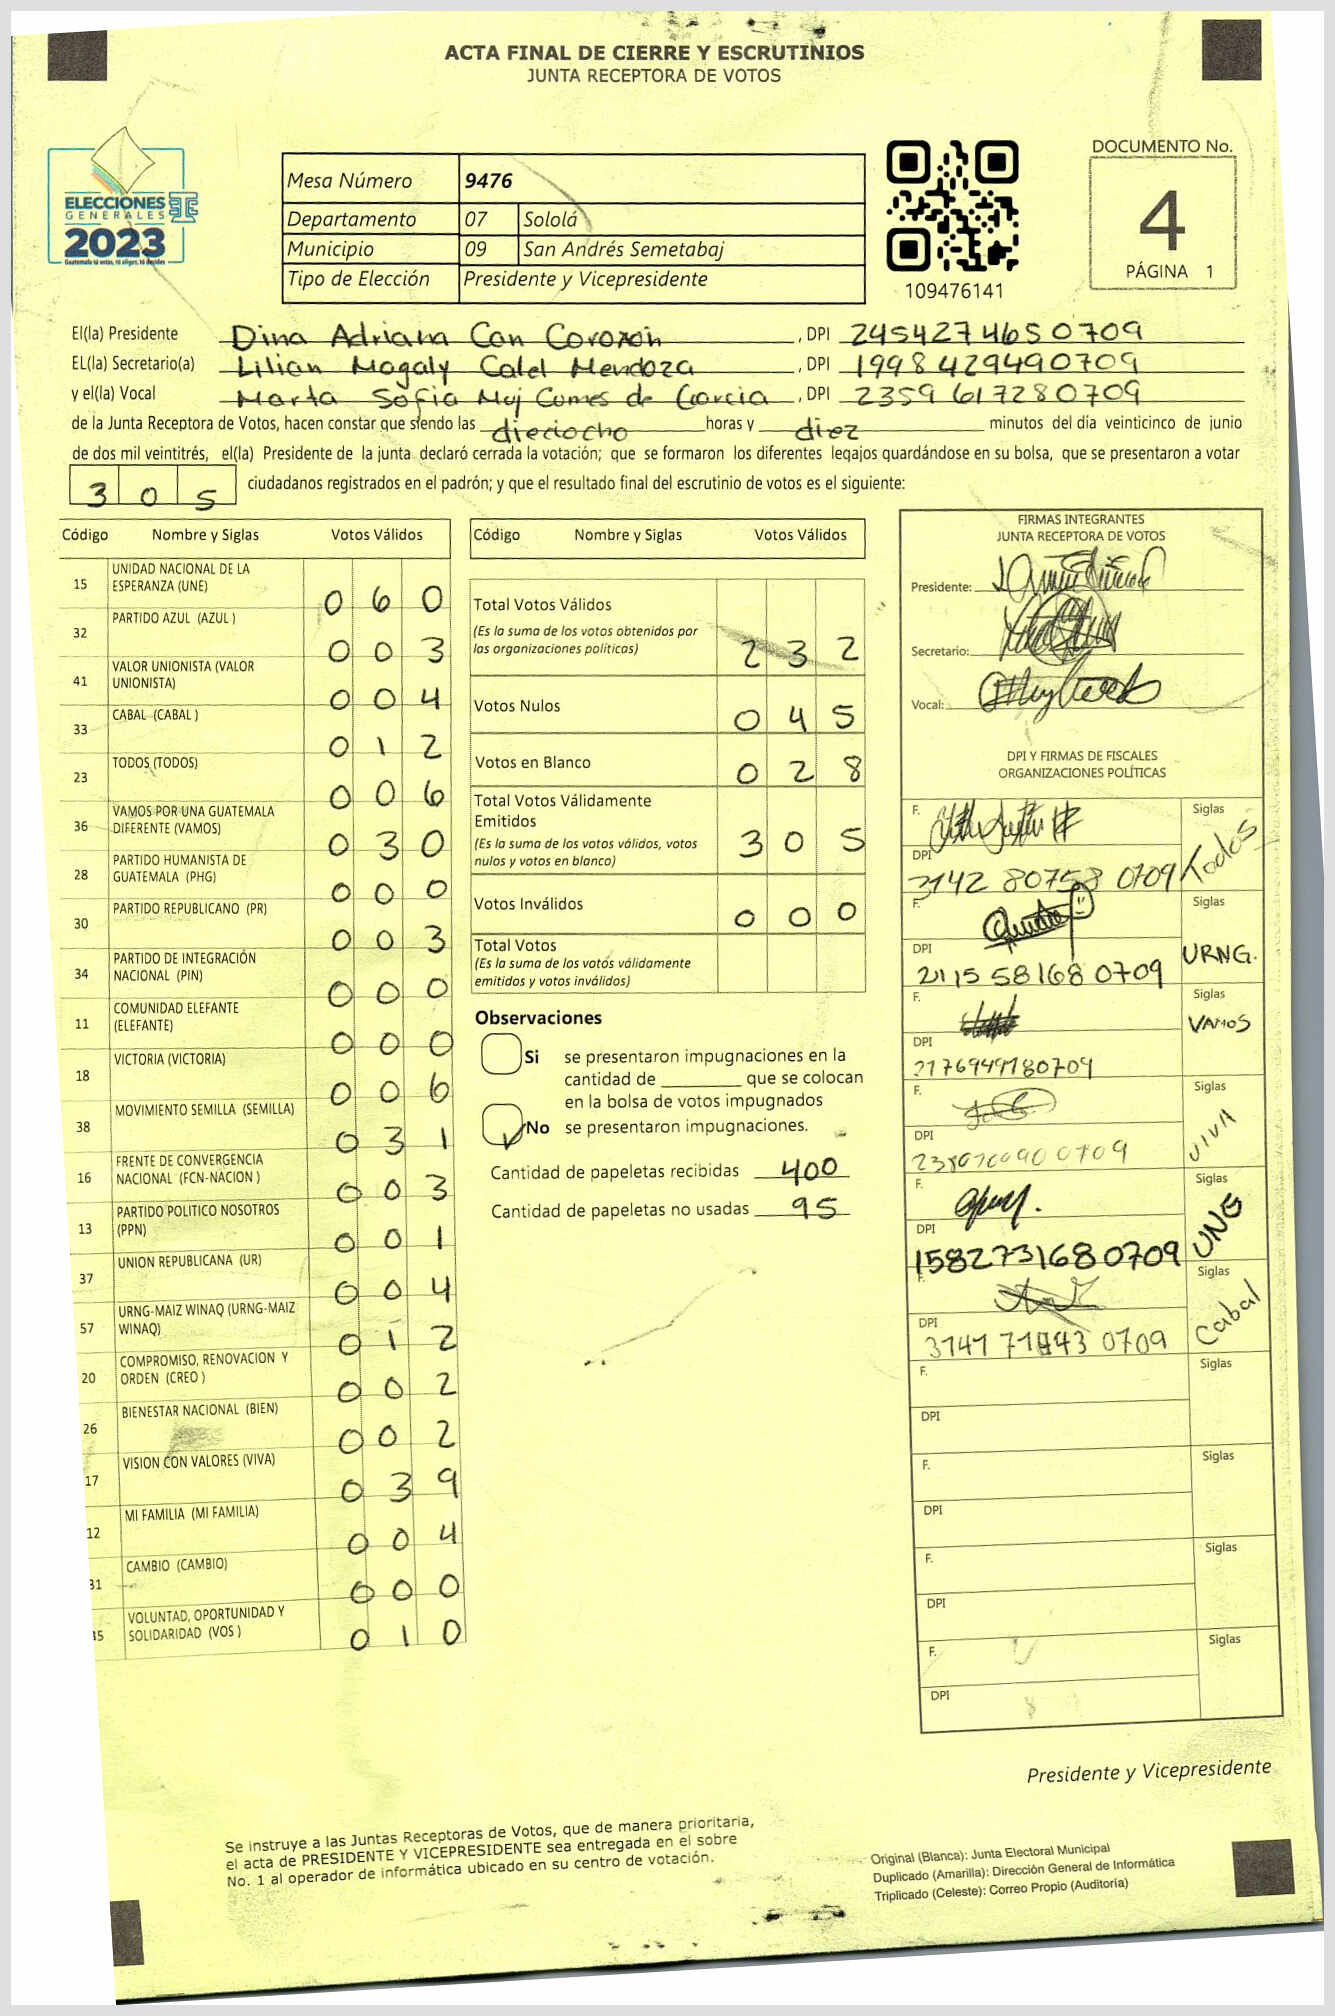 ACTA FINAL DE CIERRE Y ESCRUTINIOS
JUNTA RECEPTORA DE VOTOS
ELECCIONES
GENERALES
2023
Guatemala tú votas, tú eliges, tú decides
Mesa Número 9476
Departamento 07 Sololá
Municipio 09 San Andrés Semetabaj
Tipo de Elección Presidente y Vicepresidente
109476141
DOCUMENTO No.
4
PÁGINA 1
El(la) Presidente Dina Adriana Can Coroxón, DPI 2454274650709
EL(la) Secretario(a) Lilian Magaly Calel Mendoza, DPI 1998429490709
y el(la) Vocal Marta Sofia Muj Cumes de Garcia, DPI 2359617280709
de la Junta Receptora de Votos, hacen constar que siendo las dieciocho horas y diez minutos del día veinticinco de junio
de dos mil veintitrés, el(la) Presidente de la junta declaró cerrada la votación; que se formaron los diferentes legajos guardándose en su bolsa, que se presentaron a votar
305 ciudadanos registrados en el padrón; y que el resultado final del escrutinio de votos es el siguiente:
Código Nombre y Siglas Votos Válidos
15 UNIDAD NACIONAL DE LA ESPERANZA (UNE) 060
32 PARTIDO AZUL (AZUL ) 003
41 VALOR UNIONISTA (VALOR UNIONISTA) 004
33 CABAL (CABAL ) 012
23 TODOS (TODOS) 006
36 VAMOS POR UNA GUATEMALA DIFERENTE (VAMOS) 030
28 PARTIDO HUMANISTA DE GUATEMALA (PHG) 000
30 PARTIDO REPUBLICANO (PR) 003
34 PARTIDO DE INTEGRACIÓN NACIONAL (PIN) 000
11 COMUNIDAD ELEFANTE (ELEFANTE) 000
18 VICTORIA (VICTORIA) 006
38 MOVIMIENTO SEMILLA (SEMILLA) 031
16 FRENTE DE CONVERGENCIA NACIONAL (FCN-NACION ) 003
13 PARTIDO POLITICO NOSOTROS (PPN) 001
37 UNION REPUBLICANA (UR) 004
57 URNG-MAIZ WINAQ (URNG-MAIZ WINAQ) 012
20 COMPROMISO, RENOVACION Y ORDEN (CREO ) 002
26 BIENESTAR NACIONAL (BIEN) 002
17 VISION CON VALORES (VIVA) 039
12 MI FAMILIA (MI FAMILIA) 004
31 CAMBIO (CAMBIO) 000
45 VOLUNTAD, OPORTUNIDAD Y SOLIDARIDAD (VOS ) 010
Código Nombre y Siglas Votos Válidos
Total Votos Válidos
(Es la suma de los votos obtenidos por
las organizaciones políticas) 232
Votos Nulos 045
Votos en Blanco 028
Total Votos Válidamente
Emitidos
(Es la suma de los votos válidos, votos
nulos y votos en blanco) 305
Votos Inválidos 000
Total Votos
(Es la suma de los votos válidamente
emitidos y votos inválidos)
Observaciones
Si se presentaron impugnaciones en la
cantidad de ________ que se colocan
en la bolsa de votos impugnados
No se presentaron impugnaciones.
Cantidad de papeletas recibidas 400
Cantidad de papeletas no usadas 95
FIRMAS INTEGRANTES
JUNTA RECEPTORA DE VOTOS
Presidente:
Secretario:
Vocal:
DPI Y FIRMAS DE FISCALES
ORGANIZACIONES POLÍTICAS
F. Siglas
DPI 3142 80758 0709 Todos
F. Siglas
DPI 2115 58168 0709 URNG.
F. Siglas
DPI 2176949180709 VAMOS
F. Siglas
DPI VIVA
F. Siglas
DPI 1582731680709 UNE
F. Siglas
DPI Cabal
F. Siglas
DPI
F. Siglas
DPI
F. Siglas
DPI
F. Siglas
DPI
Presidente y Vicepresidente
Se instruye a las Juntas Receptoras de Votos, que de manera prioritaria,
el acta de PRESIDENTE Y VICEPRESIDENTE sea entregada en el sobre
No. 1 al operador de informática ubicado en su centro de votación.
Original (Blanca): Junta Electoral Municipal
Duplicado (Amarilla): Dirección General de Informática
Triplicado (Celeste): Correo Propio (Auditoría)